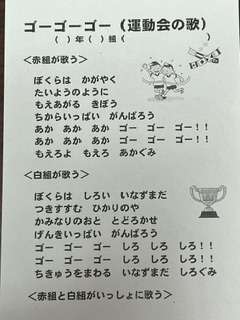 ゴーゴーゴー（運動会の歌）
（　）年（　）組（　　　　　　　）
＜赤組が歌う＞
ぼくらは　かがやく
たいようのように
もえあがる　きぼう
ちからいっぱい　がんばろう
あか　あか　あか　ゴー　ゴー　ゴー！！
あか　あか　あか　ゴー　ゴー　ゴー！！
もえろよ　もえろ　あかぐみ
＜白組が歌う＞
ぼくらは　しろい　いなずまだ
つきすすむ　ひかりのや
かみなりのおと　とどろかせ
げんきいっぱい　がんばろう
ゴー　ゴー　ゴー　しろ　しろ　しろ！！
ゴー　ゴー　ゴー　しろ　しろ　しろ！！
ちきゅうをまわる　いなずまだ　しろぐみ
＜赤組と白組がいっしょに歌う＞